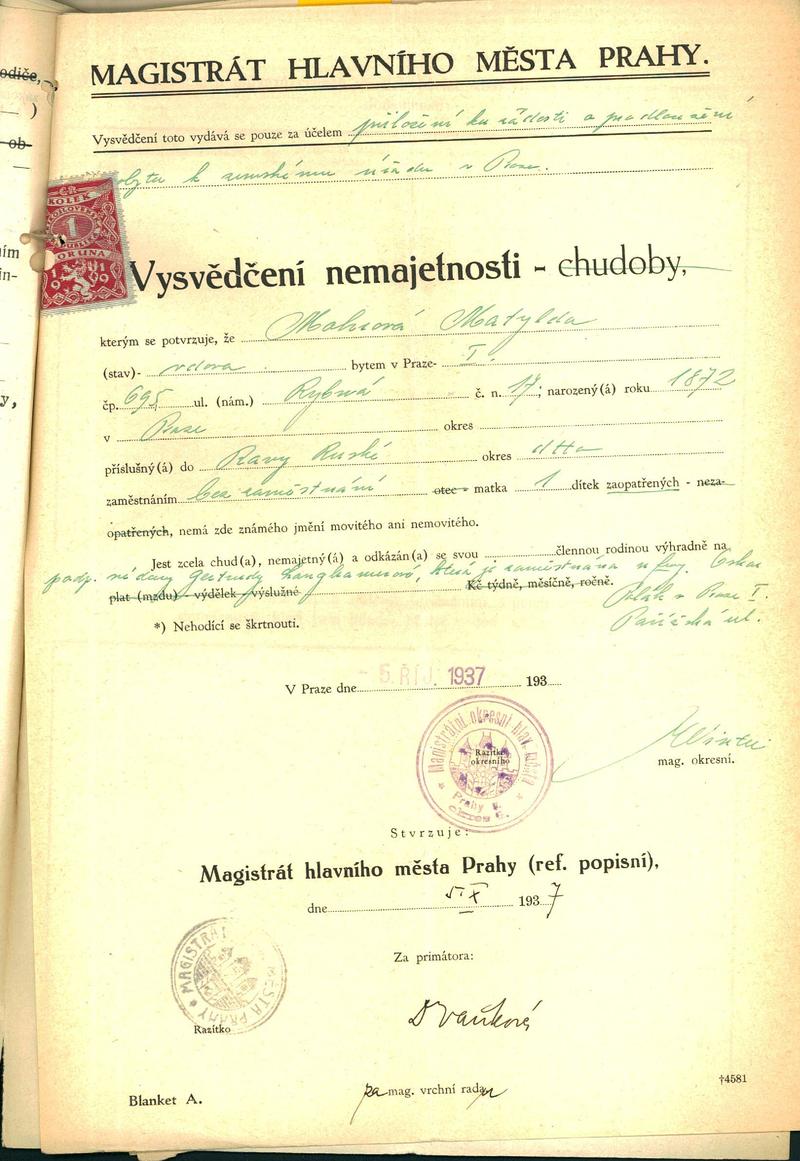 odiče,
)
ob-
ním
in-
y,
MAGISTRÁT HLAVNÍHO MĚSTA PRAHY.
Vysvědčení toto vydává se pouze za účelem přiložení ku žádosti o prodloužení
pobytu k zemskému úřadu v Praze.
KOLEK
1
KORUNA
19 19
Vysvědčení nemajetnosti - chudoby,
kterým se potvrzuje, že Matylda
(stav)- vdova bytem v Praze- I.
čp. 695 ul. (nám.) Rybná č. n. 17; narozený(á) roku 1872
v Praze okres
příslušný(á) do Ravy Ruské okres dtto
zaměstnáním bez zaměstnání otec - matka 1 dítek zaopatřených - neza-
opatřených, nemá zde známého jmění movitého ani nemovitého.
Jest zcela chud(a), nemajetný(á) a odkázán(a) se svou člennou rodinou výhradně na
podp. Gertrudy Langhamerové, která je zaměstnána u fy. Oskar
plat (mzdu) - výdělek - výslužné Kč týdně, měsíčně, ročně. Polák v Praze I.
*) Nehodící se škrtnouti. Pařížská ul.
V Praze dne - 5. ŘÍJ. 1937 193
Magistrátní okresní hlav. města
Prahy
Razítko
okresního
mag. okresní.
Stvrzuje:
Magistrát hlavního města Prahy (ref. popisní),
dne 5. X 1937
MAGISTRÁT MĚSTA PRAHY
Za primátora:
Razítko
pa mag. vrchní rada
†4581
Blanket A.